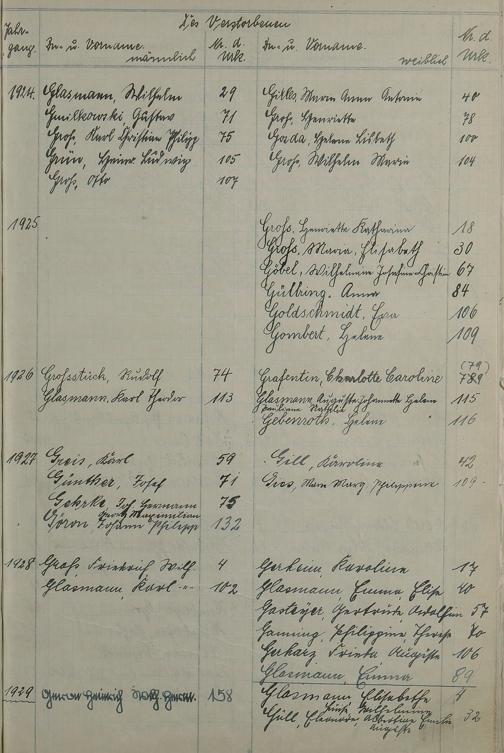 Des Verstorbenen
Jahrgang. Zu- u. Vorname. männlich Nr. d. Urk. Zu- u. Vorname. weiblich Nr. d. Urk.
1924. Glasmann, Wilhelm 29 Maria Anna Antonie 40
Gmilkowski, Gustav 71 Groß, Henriette 78
Groß, Karl Christian Philipp 75 Helene Lisbeth 100
Grün, Heinr. Ludwig 105 Groß, Wilhelm Maria 104
Groß, Otto 107
1925 Groß, Henriette Katharina 18
Groß, Maria, Elisabeth 30
Göbel, Wilhelmine Josefine 67
Gülbring, Anna 84
Goldschmidt, Eva 106
Gombert, Helene 109
(79)
1926 Grossstück, Rudolf 74 Grafentin, Charlotte Caroline
Glasmann, Karl Theodor 113 Glasmann, Auguste Johannette Helene 115
Gebenroth, Helene 116
1927 Greis, Karl 59 Gill, Karoline 42
Günther, Josef 71 Philippine 109
Gehrke, Joh. Hermann 75
Georg Maximilian
Göron Johann Philipp 132
1928 Groß Friedrich Wilh 4 Karoline 17
Glasmann, Karl 102 Glasmann, Emma Elise 40
Gasteyer Gertrude, Adolfine 57
Philippine Therese 70
Gerharz Frieda Auguste 106
Glasmann, Emma 89
1929 Heinrich Wilh. Herm. 158 Glasmann Elisabethe 4
Wilhelmine
Güll, Eleonore, Albertine Emilie 32
Auguste